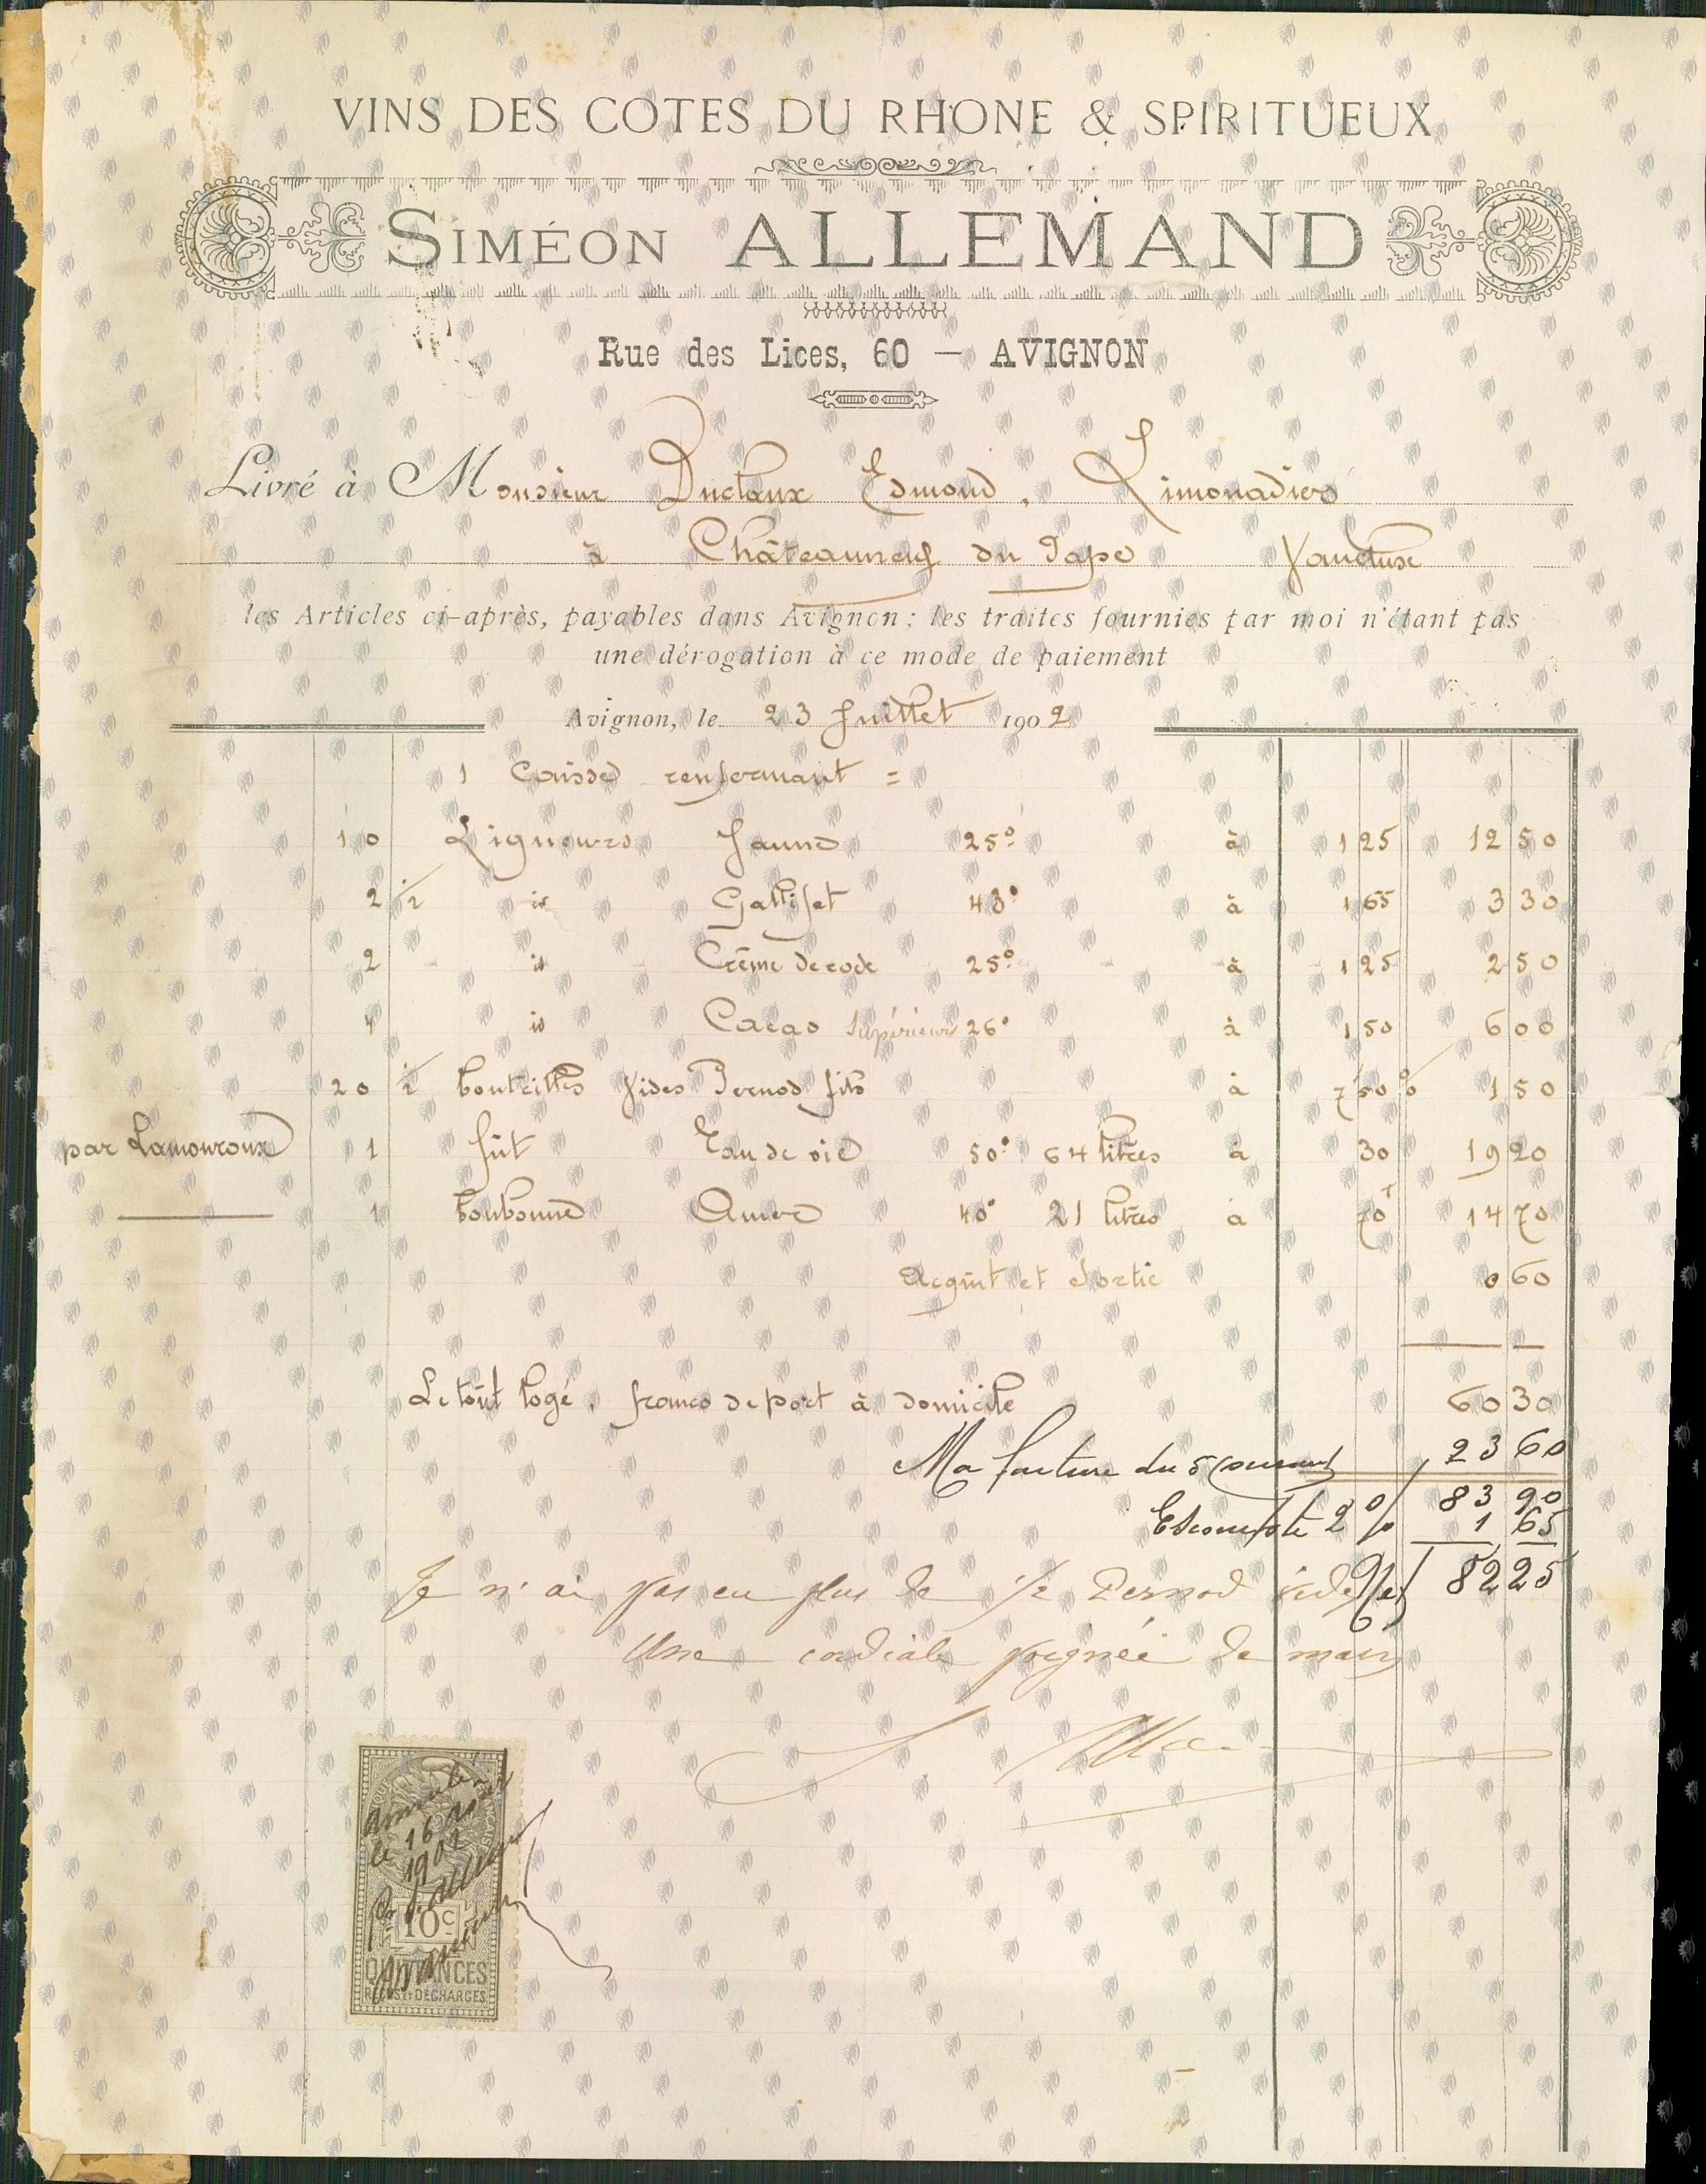 VINS DES COTES DU RHONE & SPIRITUEUX
SIMÉON ALLEMAND
Rue des Lices, 60 — AVIGNON
Livré à Monsieur Duclaux Edmond, Limonadier
à Châteauneuf du Pape Vaucluse
les Articles ci-après, payables dans Avignon; les traites fournies par moi n'étant pas
une dérogation à ce mode de paiement
Avignon, le 23 Juillet 1902
1 Caisse renfermant =
10 Liqueurs Jaune 25° à 1 25 12 50
2 ½ id Gallifet 43° à 1 65 3 30
2 id Crème de rose 25° à 1 25 2 50
4 id Cacao Supérieur 26° à 1 50 6 00
20 ½ bouteilles vides Pernod fils à 7 50 % 1 50
par Lamouroux 1 fût Eau de vie 50° 64 litres à 30 19 20
1 bonbonne Amer 40° 21 litres à 70 14 70
Acquit et Sortie 0 60
Le tout logé, franco de port à domicile 60 30
Ma facture du 5 courant, 23 60
83 90
Escompte 2 % 1 65
Net 82 25
Je n'ai pas eu plus de ½ Pernod vides
Une cordiale poignée de main
S. Allemand
Annulé
le 16
1902
10c
QUITTANCES
REÇUS ET DÉCHARGES